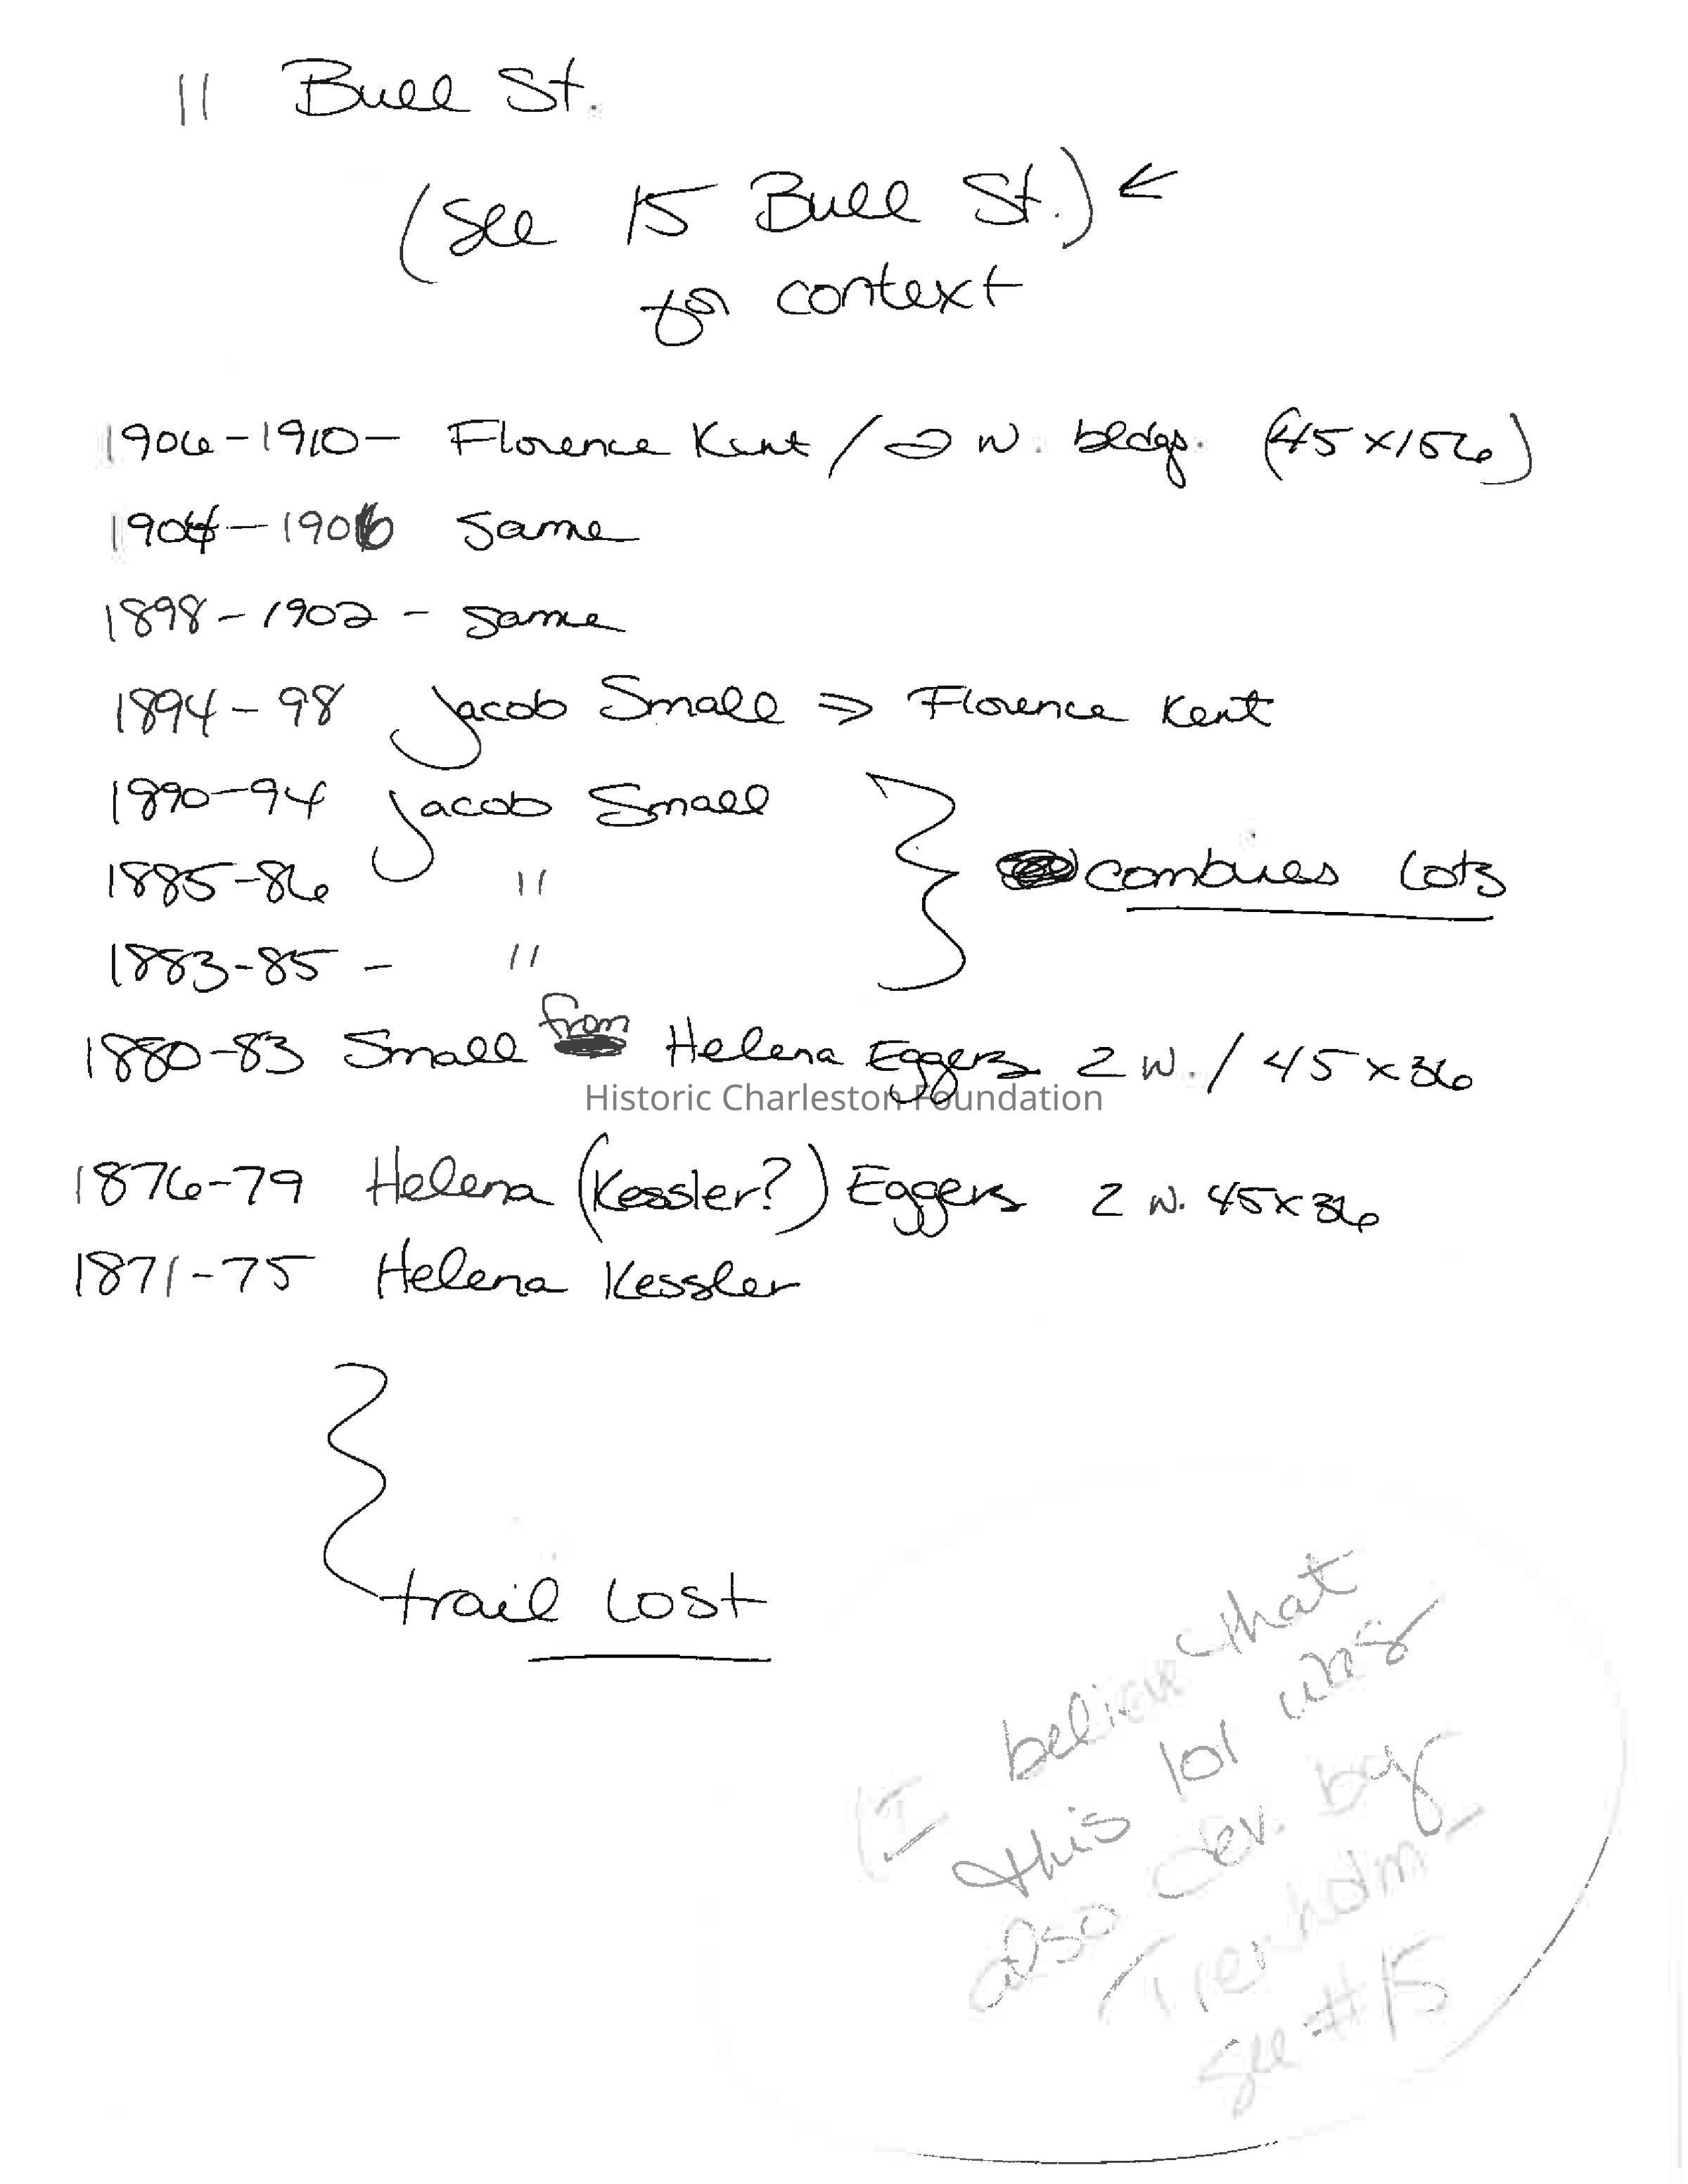 11 Bull St.
(See 15 Bull St.) ←
for context
1906-1910- Florence Kent / 2 w. bldgs. (45x156)
1904-1906 same
1898-1902 - same
1894-98 Jacob Small ⇒ Florence Kent
1890-94 Jacob Small
1885-86 "
combines lots
1883-85 - "
1880-83 Small from Helena Eggers 2 w. / 45x36
Historic Charleston Foundation
1876-79 Helena (Kessler?) Eggers 2 w. 45x36
1871-75 Helena Kessler
trail lost
(I believe that
this lot was
also dev. by
Trenholm
see #15